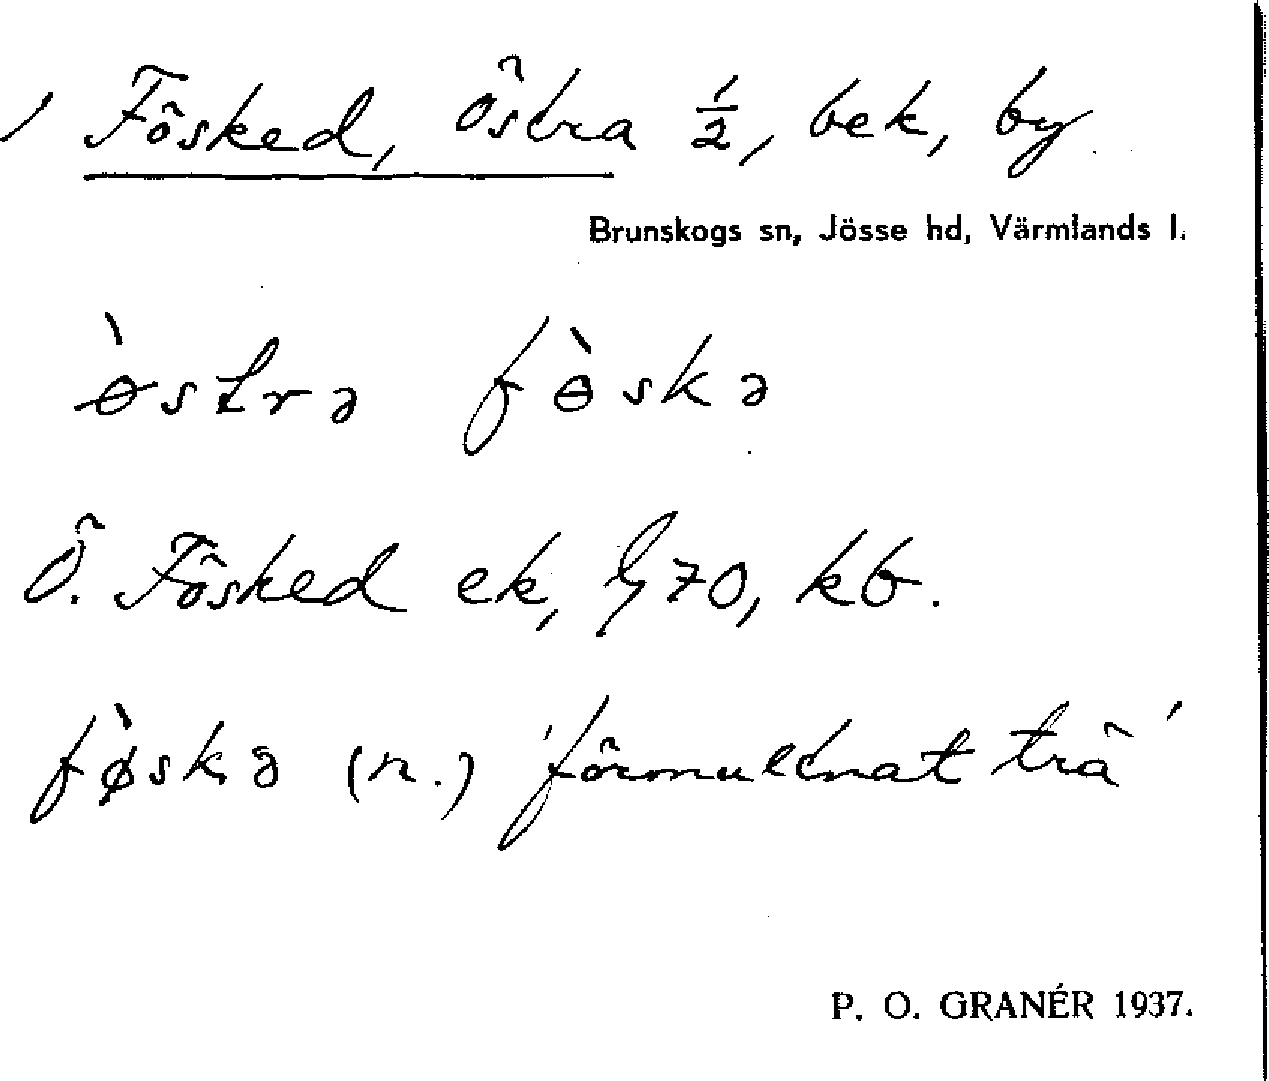 Fösked, Östra ½, bek, by
Brunskogs sn, Jösse hd, Värmlands l.
ɵ̀strə fɵ̀skə
Ö. Fösked ek, G 70, kb.
fø̀skə (n.) 'förmultnat trä'
P. O. GRANÉR 1937.